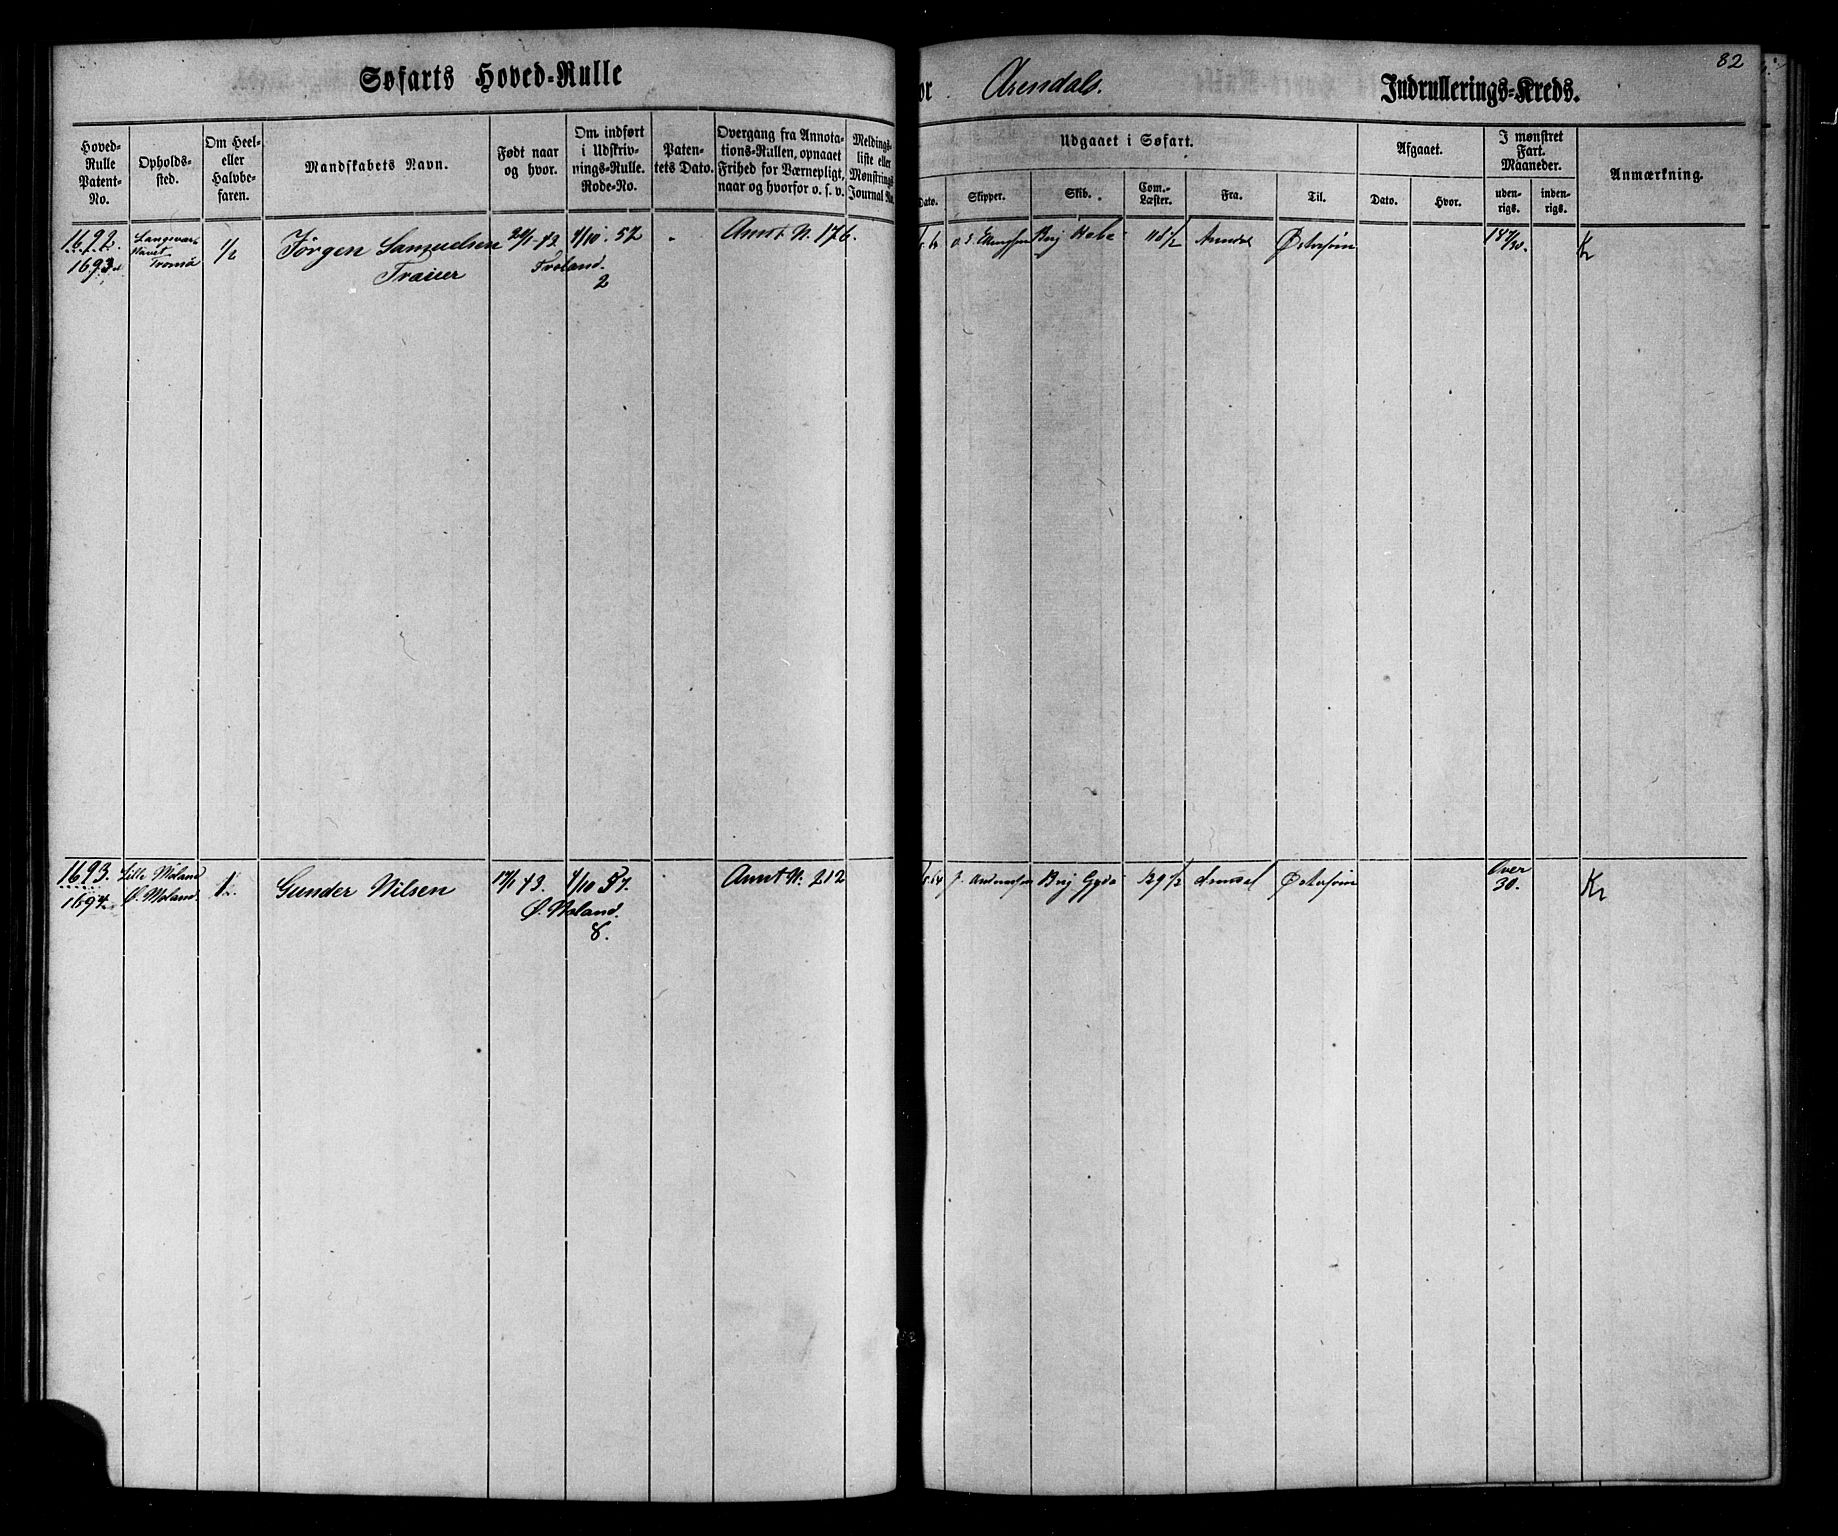 82
Søfarts Hoved-Rulle
or Arendals. Indrullerings-Kreds.
Hoved-Rulle Patent-No.
Opholds-sted.
Om Heel- eller Halvbe-faren.
Mandskabets Navn.
Født naar og hvor.
Om indført i Udskriv-nings-Rulle. Rode-No.
Paten-tets Dato.
Overgang fra Annota-tions-Rullen, opnaaet Frihed for Værnepligt, naar og hvorfor o. s. v.
Meldings-liste eller Mønstrings Journal No.
Udgaaet i Søfart.
Dato.
Skipper.
Skib.
Com.-Læster.
Fra.
Til.
Afgaaet.
Dato.
Hvor.
I mønstret Fart. Maaneder.
uden-rigs.
inden-rigs.
Anmærkning.
1692.
1693.
Tromø
1/2
Jørgen Samuelsen
Froland.
2
7/10. 57
Annt N. 176.
Brig Hebe
Arendal
Østersøen
K
1693.
1694.
Lille Moland
Ø. Moland.
Gunder Nilsen
43.
Ø. Moland.
8.
7/10 57.
Annt N. 212
Brig Gyda
Østersøen
Over
30.